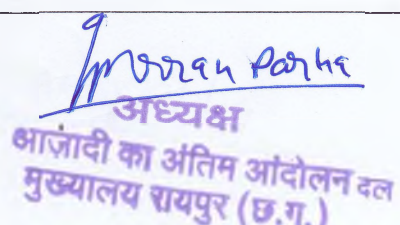 Imran Pasha
अध्यक्ष
आज़ादी का अंतिम आंदोलन दल
मुख्यालय रायपुर (छ.ग.)